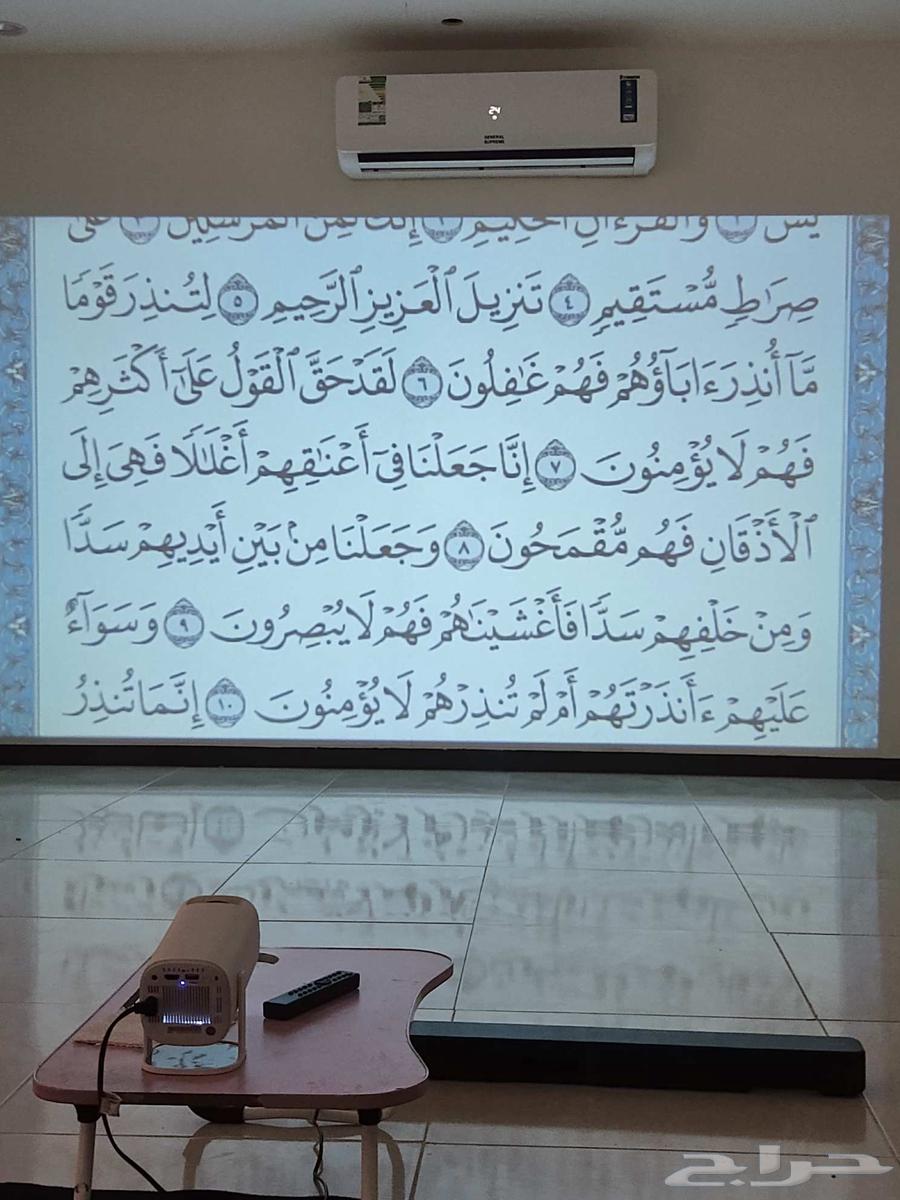 GENERAL
SUPREME
يسٓ ١ وَٱلْقُرْءَانِ ٱلْحَكِيمِ ٢ إِنَّكَ لَمِنَ ٱلْمُرْسَلِينَ ٣ عَلَىٰ
صِرَٰطٍ مُّسْتَقِيمٍ ٤ تَنزِيلَ ٱلْعَزِيزِ ٱلرَّحِيمِ ٥ لِتُنذِرَ قَوْمًا
مَّآ أُنذِرَ ءَابَآؤُهُمْ فَهُمْ غَٰفِلُونَ ٦ لَقَدْ حَقَّ ٱلْقَوْلُ عَلَىٰٓ أَكْثَرِهِمْ
فَهُمْ لَا يُؤْمِنُونَ ٧ إِنَّا جَعَلْنَا فِىٓ أَعْنَٰقِهِمْ أَغْلَٰلًا فَهِىَ إِلَى
ٱلْأَذْقَانِ فَهُم مُّقْمَحُونَ ٨ وَجَعَلْنَا مِنۢ بَيْنِ أَيْدِيهِمْ سَدًّا
وَمِنْ خَلْفِهِمْ سَدًّا فَأَغْشَيْنَٰهُمْ فَهُمْ لَا يُبْصِرُونَ ٩ وَسَوَآءٌ
عَلَيْهِمْ ءَأَنذَرْتَهُمْ أَمْ لَمْ تُنذِرْهُمْ لَا يُؤْمِنُونَ ١٠ إِنَّمَا تُنذِرُ
حراج